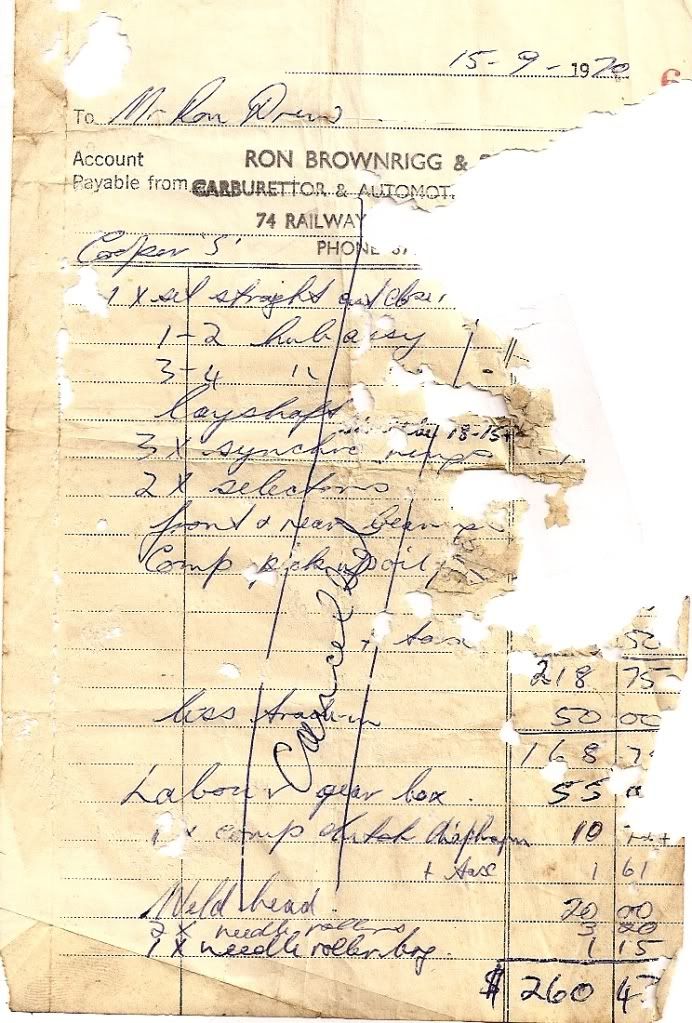 15-9-1970
6
To Mr Ron Drew
Account RON BROWNRIGG &
Payable from CARBURETTOR & AUTOMOT
74 RAILWAY
Cooper 'S' PHONE
1 x set straight cut close
1-2 hub assy
3-4 "
layshaft
18-15
3 x synchro rings
2 x selectors
front & rear
Comp pick up oil
+ tax 50
218 75
less trade-in 50 00
168 7
Labour gear box. 55
1 x comp clutch diaphapm 10
+ tax 1 61
Weld head. 20 00
2 x needle rollers 3 20
1 x needle roller brg. 1 15
$ 260 47
Cancelled